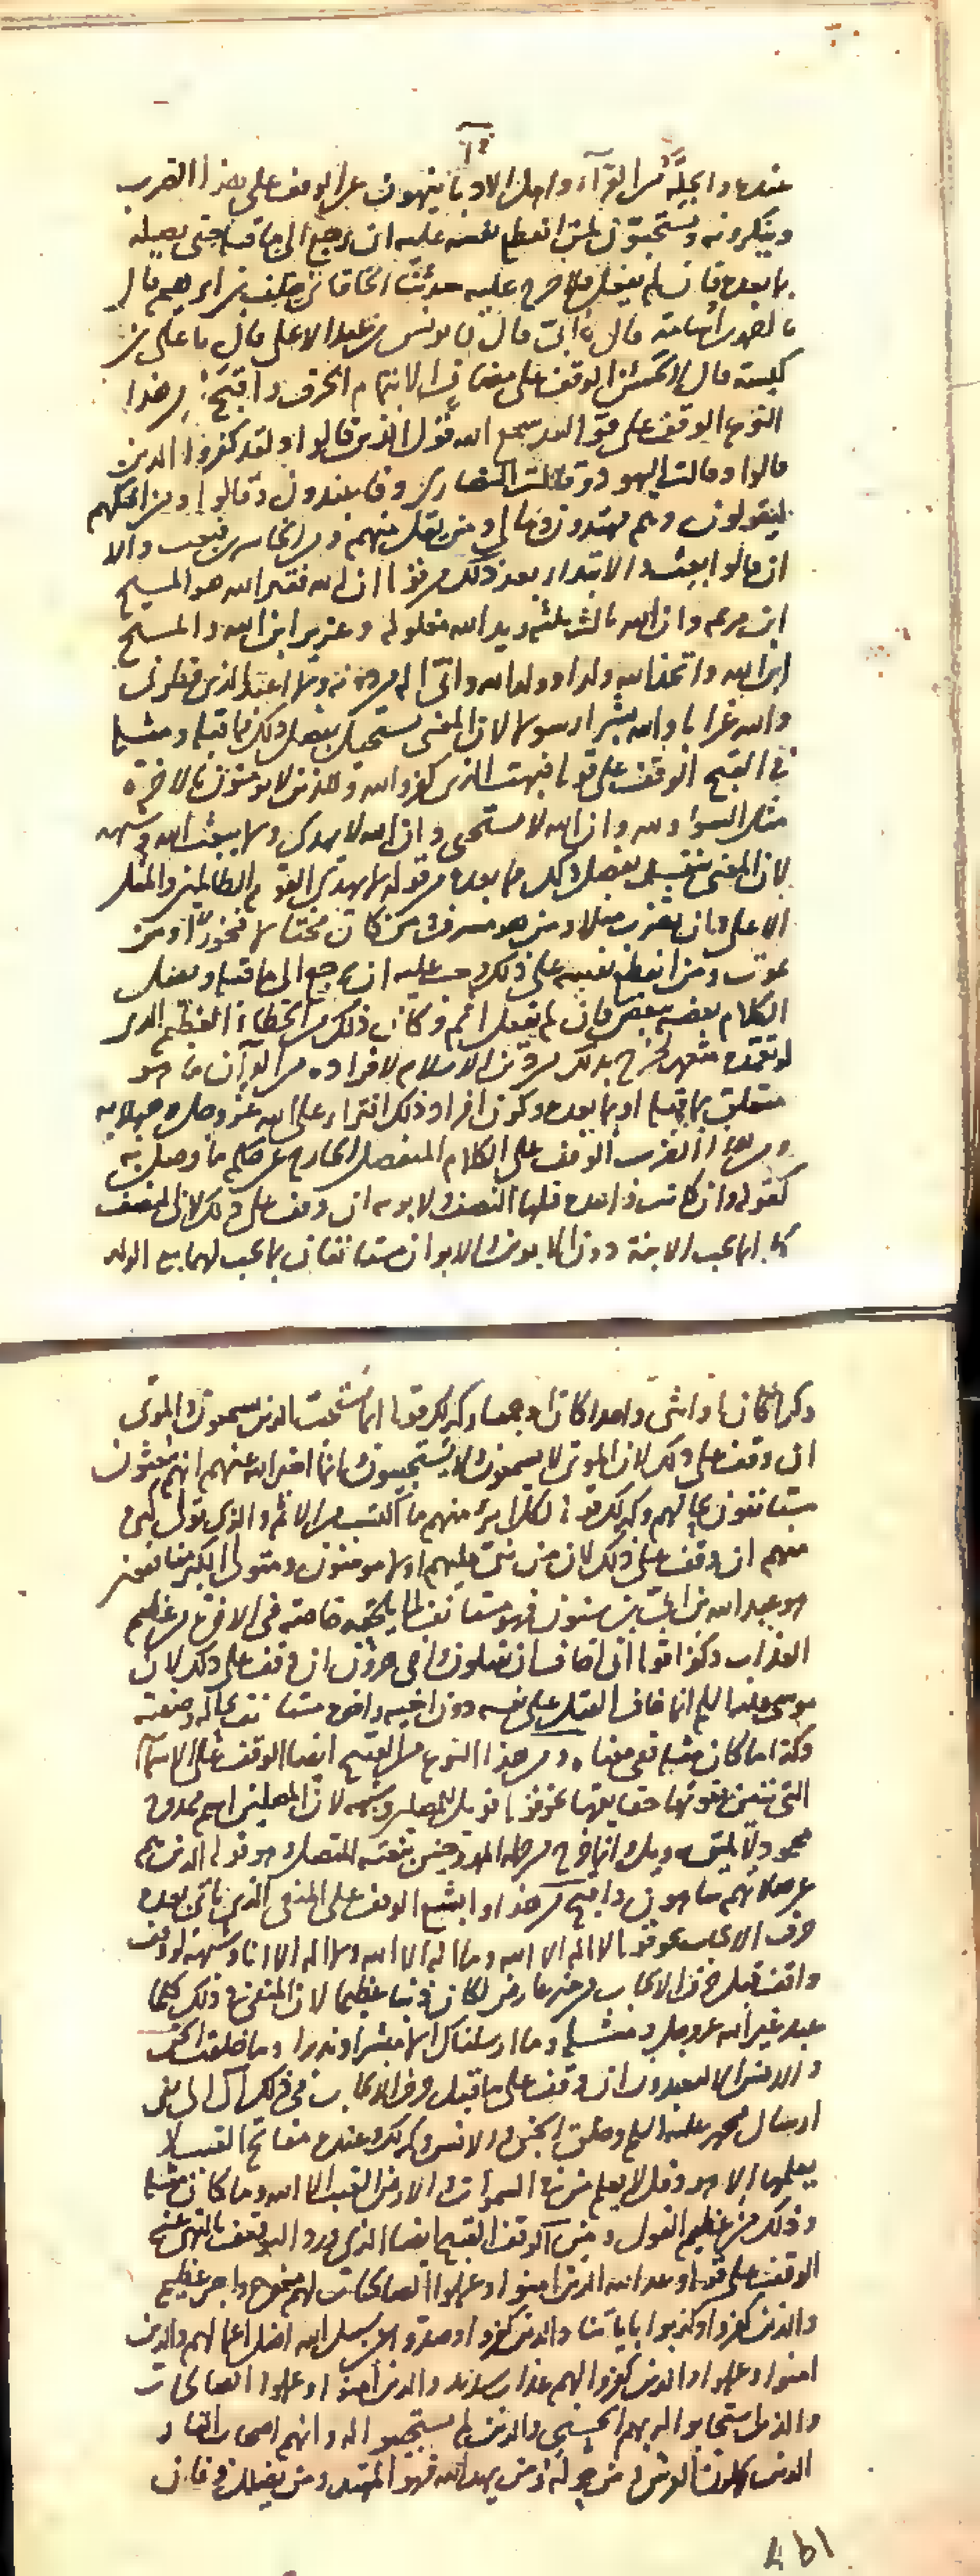 عنده والجلة من القراء واهل الاداء ينهون عن الوقف على هذا الضرب
وينكرونه ويستحبون لمن انقطع نفسه عليه ان يرجع الى ما قبله حتى يصله
بما بعده فان لم يفعل فلا حرج عليه حدثنا الخاقاني خلف بن ابراهيم قال
قال نا يونس بن عبد الاعلى قال نا على بن
كيسة قال الوقف على الحرف واقبح من هذا
النوع الوقف على قوله لقد سمع الله قول الذين قالوا ولقد كفروا الذين
قالوا وقالت اليهود وقالت النصارى وفاعبدون وقالوا ومن افكهم
ليقولون وهم مهتدون ومالى ومن يقل منهم ومن الخاسرين فبعث والا
ان قالوا ابعث والابتداء بعد ذلك بقوله ان الله فقير الله هو المسيح
ابن مريم وان الله ثالث ثلثة ويد الله مغلولة وعزير ابن الله والمسيح
ابن الله واتخذ الله ولدا وولد الله وانى اله من دونه ولا اعبد الذى فطرنى
والله غرابا والله بشرا رسولا لان المعنى يستحيل بفصل ذلك مما قبله ومثله
فى القبح الوقف على قوله فبهت الذى كفر والله وللذين لا يؤمنون بالاخرة
مثل السوء ولله وان الله لا يستحى وان الله لا يهدى ولا يبعث الله وشبهه
لان المعنى يفسد بفصل ذلك مما بعده من قوله لا يهدى القوم الظالمين والمثل
الاعلى وان يضرب مثلا ومن هو مسرف من كان مختالا فخورا ومن
يموت ومن انقطع نفسه على ذلك وجب عليه ان يرجع الى ما قبله ويصل
الكلام بعضه ببعض فان لم يفعل اثم وكان ذلك من الخطاء العظيم الذى
لو تعمده متعمد لخرج بذلك من دين الاسلام لافراده من القرآن ما هو
متعلق بما قبله او بما بعده وكون افراد ذلك افتراء على الله عز وجل وجهلا به
ومن هذا الضرب الوقف على الكلام المنفصل الخارج عن حكم ما وصل به
كقوله وان كانت واحدة فلها النصف ولابويه ان وقف على ذلك لان النصف
كله انما يجب للابنة دون الابوين والابوان مستأنفان بما يجب لهما مع الولد
ذكرا كان او انثى واحدا كان او جمعا وكذلك قوله انما يستجيب الذين يسمعون والموتى
ان وقف على ذلك لان الموتى لا يسمعون ولا يستجيبون انما اخبر الله عنهم انهم يبعثون
مستانفون بحالهم وكذلك قوله لكل امرئ منهم ما اكتسب من الاثم والذى تولى كبره
منهم ان وقف على ذلك لان من
هو عبد الله بن ابى بن سلول فهو مستانف لما يلحقه خاصة فى الاخرة من عظيم
العذاب وكذا قوله انى اخاف ان يقتلون واخى هرون ان وقف على ذلك لان
موسى عليه السلم انما خاف القتل على نفسه دون اخيه واخوه مستانف بحاله وصفته
وكذا ما كان مثله فى معناه ومن هذا النوع من القبح ايضا الوقف على الاسماء
التى تبين نعوتها حقايقها نحو قوله فويل للمصلين وشبهه لان المصلين اسم ممدوح
محمود لا يليق به ويل وانما خرج من جملة الممدوحين بنعته المتصل وهو قوله الذين هم
عن صلاتهم ساهون واقبح من هذا وابشع الوقف على المنفى الذى ياتى بعده
حرف الايجاب نحو قوله لا اله الا الله وما اله الا الله ولا اله الا انا وشبهه لو وقف
واقف قبل حرف الايجاب من غير عارض لكان ذنبا عظيما لان المنفى فى ذلك كلما
عبد غير الله عز وجل ومثله وما ارسلناك الا مبشرا ونذيرا وما خلقت الجن
والانس الا ليعبدون ان وقف على ما قبل حرف الايجاب فى ذلك آل الى نفى
ارسال محمد عليه السلم وخلق الجن والانس وكذلك وعنده مفاتح الغيب لا
يعلمها الا هو وقل لا يعلم من فى السموات والارض الغيب الا الله وما كان مثله
وذلك من عظيم القول ومن الوقف القبيح ايضا الذى ورد التوقيف بالنهى عنه
الوقف على قوله وعد الله الذين امنوا وعملوا الصالحات لهم مغفرة واجر عظيم
والذين كفروا وكذبوا باياتنا والذين كفروا وصدوا عن سبيل الله اضل اعمالهم والذين
امنوا وعملوا والذين كفروا لهم عذاب شديد والذين امنوا وعملوا الصالحات
والذين استجابوا لربهم الحسنى والذين لم يستجيبوا له وانهم اصحاب النار
الذين يحملون العرش ومن حوله ومن يهد الله فهو المهتد ومن يضلل وفان